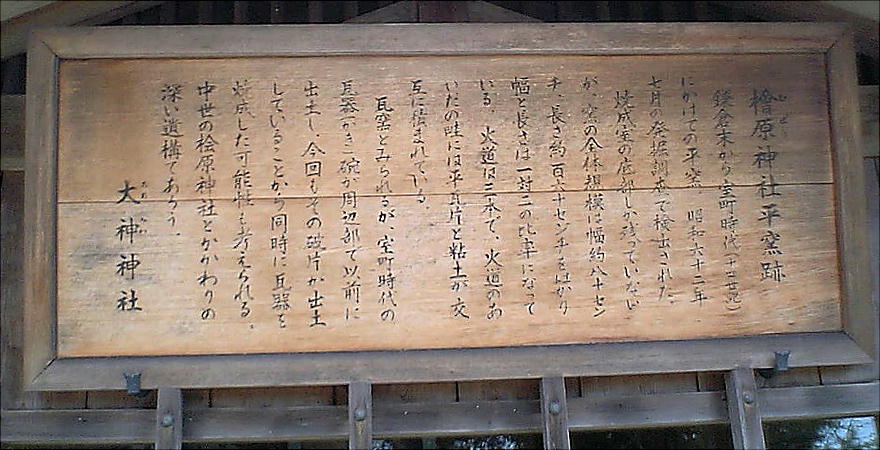 檜原神社平窯跡
ひ ばら
鎌倉末から室町時代(十三世紀)
にかけての平窯。昭和六十二年
七月の発掘調査で検出された。
焼成室の底部しか残っていない
が、窯の全体規模は幅約八十セン
チ、長さ約百六十センチをはかり
幅と長さは一対二の比率になって
いる。火道は三本で、火道のあ
いだの畦には平瓦片と粘土が交
互に積まれている。
瓦窯とみられるが、室町時代の
瓦器(がき)碗が周辺部で以前に
出土し、今回もその破片が出土
していることから同時に瓦器を
焼成した可能性も考えられる。
中世の桧原神社とかかわりの
深い遺構であろう。
大神神社
おお みわ